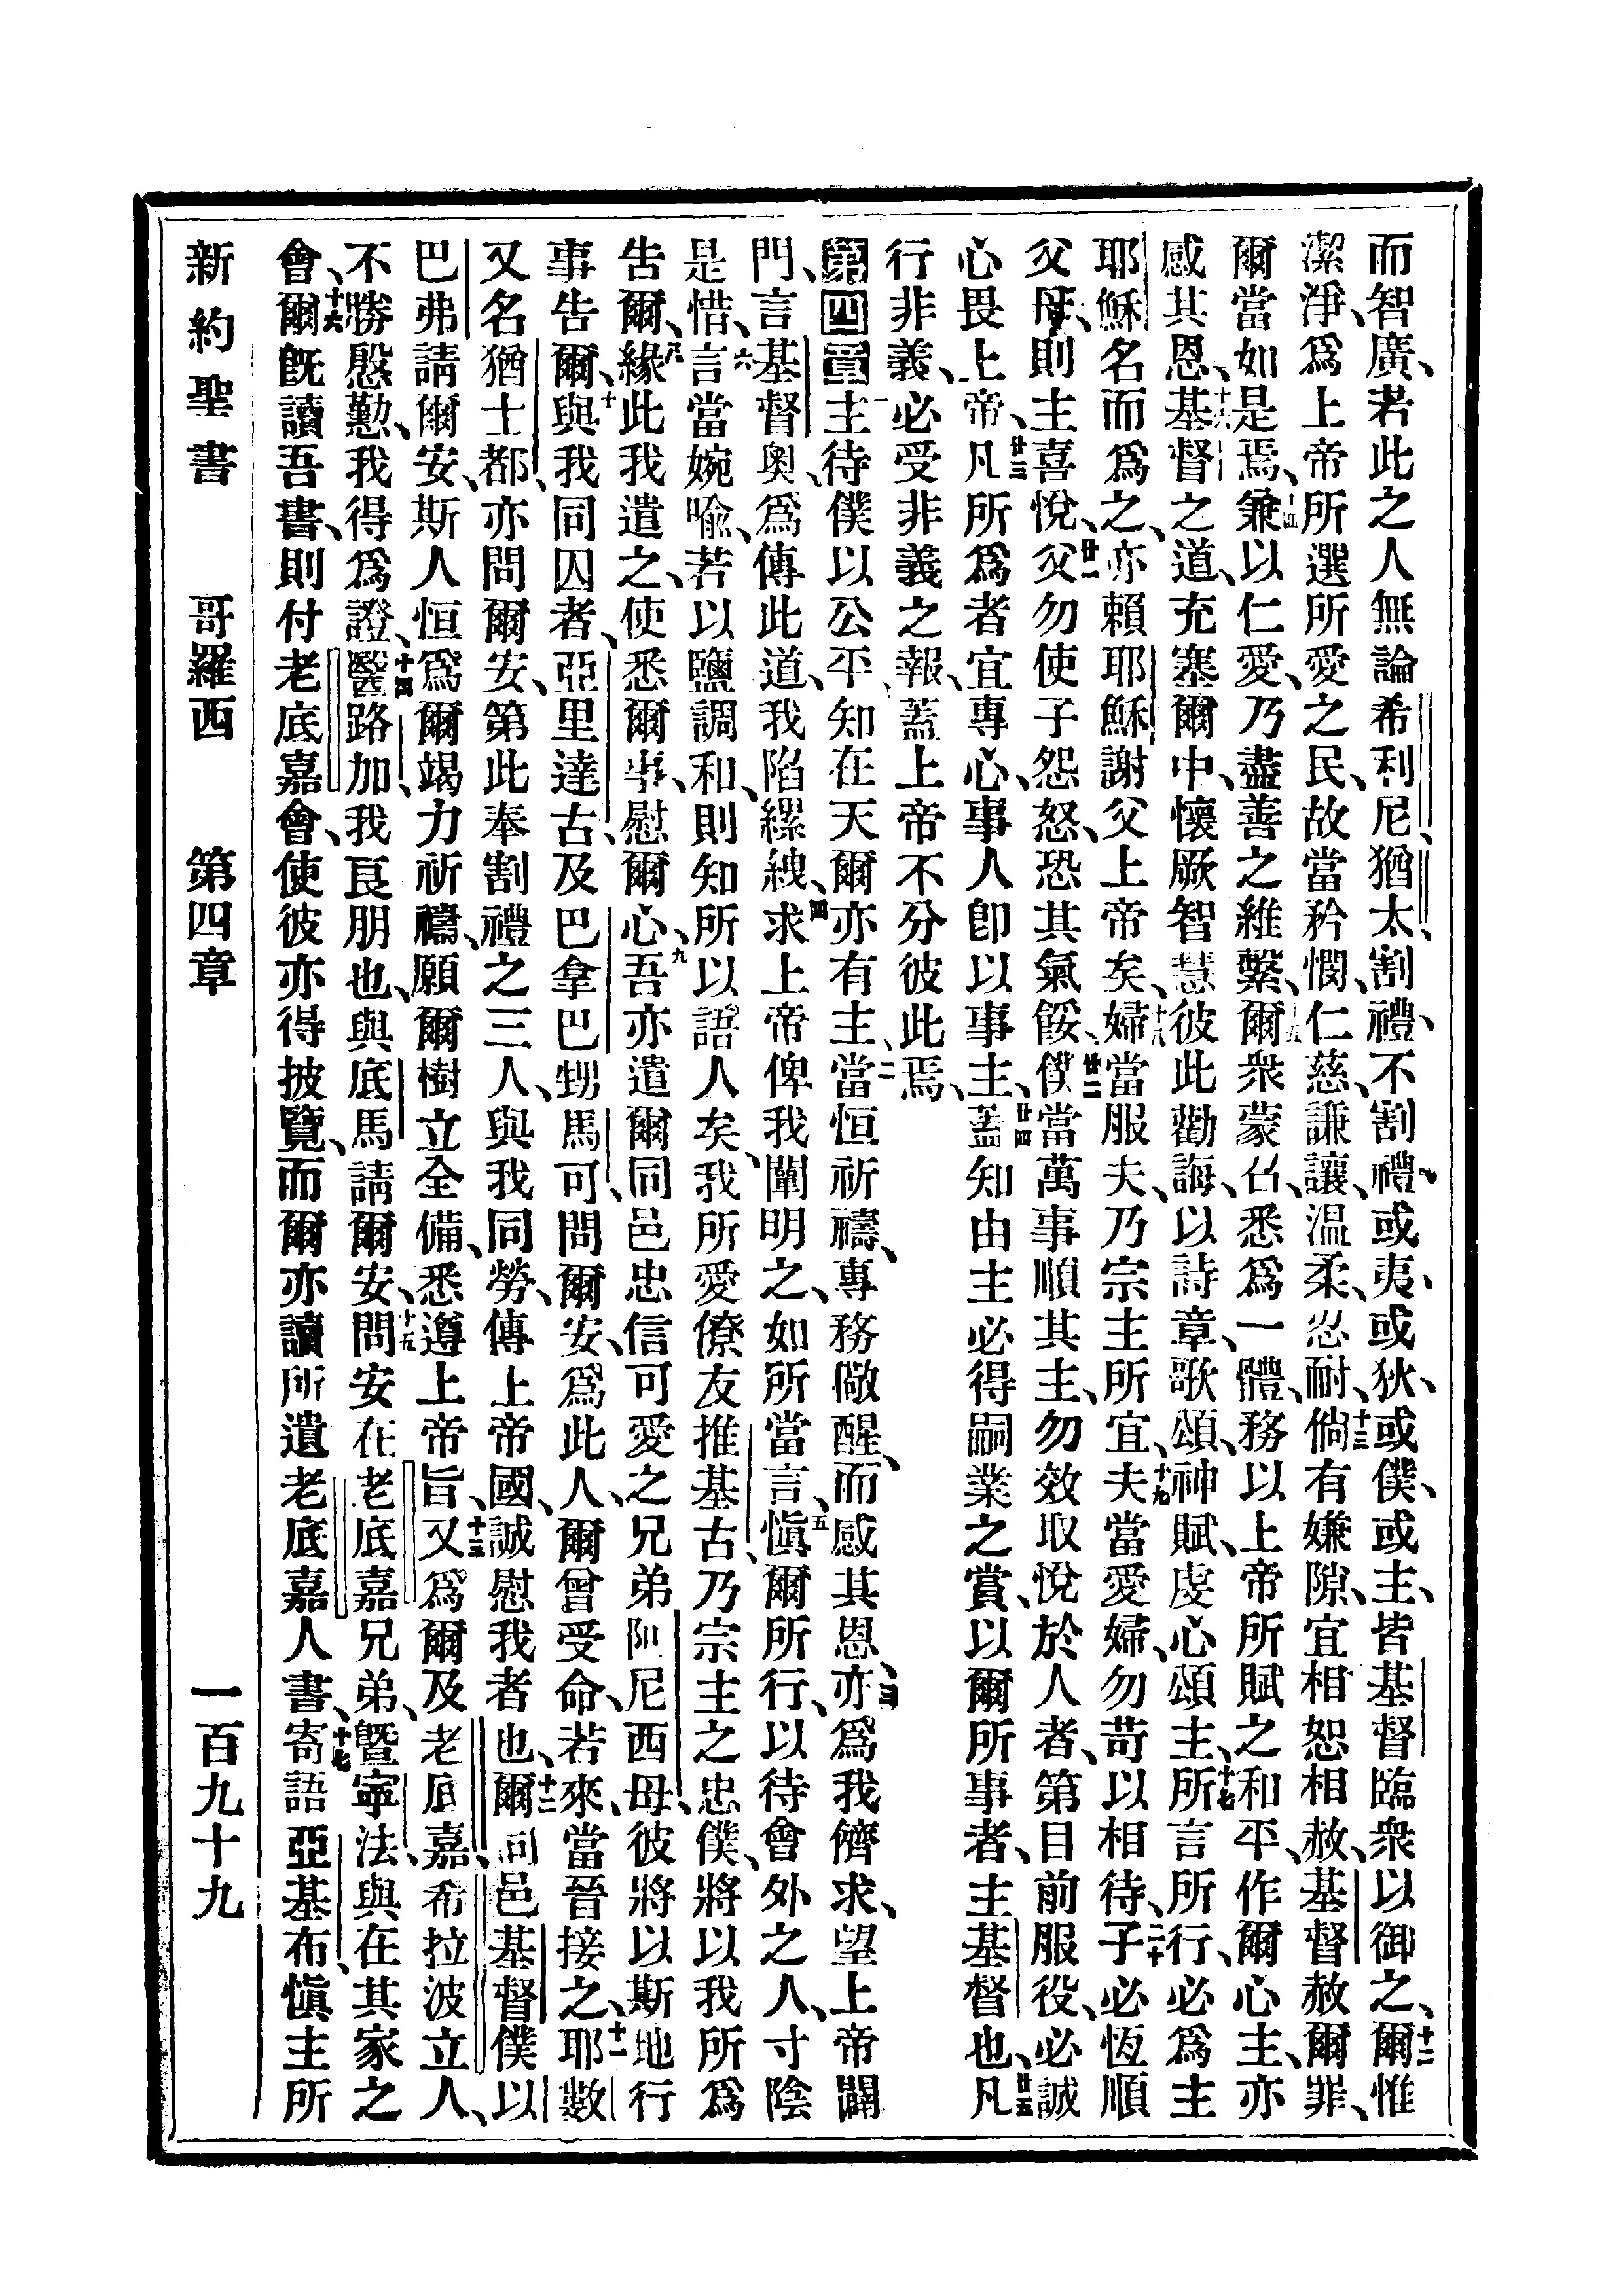 而智廣、若此之人無論希利尼、猶太、割禮、不割禮、或夷、或狄、或僕、或主、皆基督臨衆以御之、十二爾惟
潔淨、爲上帝所選所愛之民、故當矜憫、仁慈、謙讓、温柔、忍耐、十三倘有嫌隙、宜相恕相赦、基督赦爾罪、
爾當如是焉、十四兼以仁愛、乃盡善之維繫、十五爾衆蒙召、悉爲一體、務以上帝所賦之和平、作爾心主、亦
感其恩、十六基督之道、充塞爾中、懷厥智慧、彼此勸誨、以詩章、歌頌、神賦、虔心頌主、十七所言所行、必爲主
耶穌名而爲之、亦賴耶穌謝父上帝矣、十八婦當服夫、乃宗主所宜、十九夫當愛婦、勿苛以相待、二十子必恆順
父母、則主喜悅、廿一父勿使子怨怒、恐其氣餒、廿二僕當萬事順其主、勿效取悅於人者、第目前服役、必誠
心畏上帝、廿三凡所爲者宜專心、事人卽以事主、廿四蓋知由主必得嗣業之賞、以爾所事者、主基督也、廿五凡
行非義、必受非義之報、蓋上帝不分彼此焉、
第四章一主待僕以公平、知在天爾亦有主、二當恒祈禱、專務儆醒、而感其恩、三亦爲我儕求、望上帝闢
門、言基督奧、爲傳此道、我陷縲絏、四求上帝俾我闡明之、如所當言、五愼爾所行、以待會外之人、寸陰
是惜、六言當婉喻、若以鹽調和、則知所以語人矣、七我所愛僚友推基古、乃宗主之忠僕、將以我所爲
告爾、八緣此我遣之、使悉爾事、慰爾心、九吾亦遣爾同邑忠信可愛之兄弟阿尼西母、彼將以斯地行
事告爾、十與我同囚者、亞里達古、及巴拿巴甥馬可、問爾安、爲此人、爾曾受命、若來、當晉接之、十一耶數
又名猶士都、亦問爾安、第此奉割禮之三人、與我同勞、傳上帝國、誠慰我者也、十二爾同邑基督僕以
巴弗請爾安、斯人恒爲爾竭力祈禱、願爾樹立全備、悉遵上帝旨、十三又爲爾及老底嘉、希拉波立人、
不勝慇懃、我得爲證、十四醫路加、我良朋也、與底馬請爾安、十五問安在老底嘉兄弟、曁寧法、與在其家之
會、十六爾旣讀吾書、則付老底嘉會、使彼亦得披覽、而爾亦讀所遺老底嘉人書、十七寄語亞基布、愼主所
新約聖書　哥羅西　第四章　一百九十九